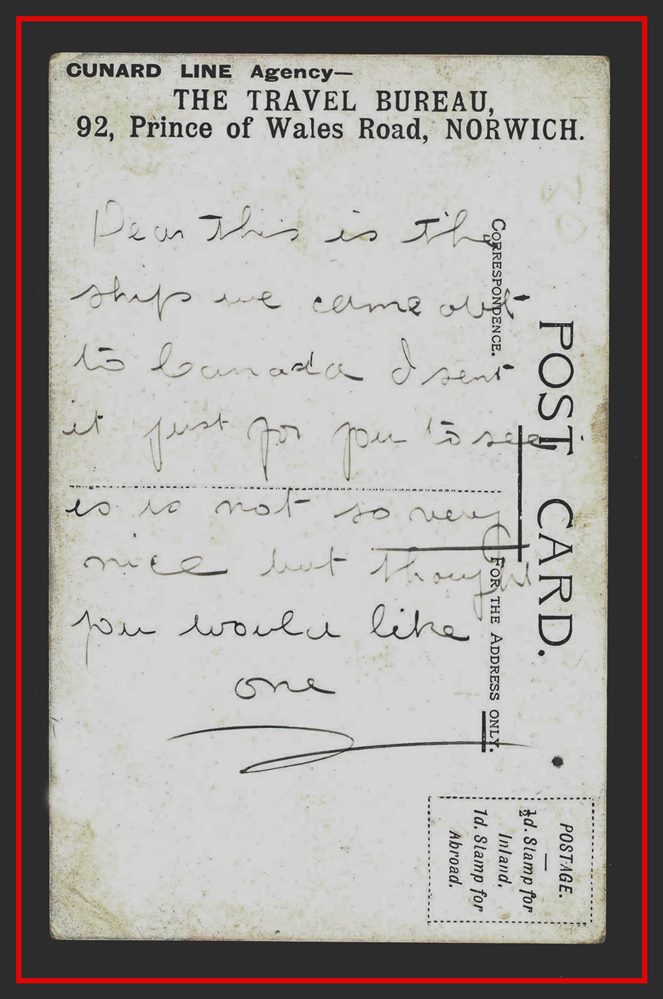 CUNARD LINE Agency—
THE TRAVEL BUREAU,
92, Prince of Wales Road, NORWICH.
Dear this is the
ship we came out
to Canada I sent
it just for you to see
is is not so very
nice but thought
you would like
one
POST CARD.
CORRESPONDENCE.
FOR THE ADDRESS ONLY.
POSTAGE.
½d. Stamp for
Inland.
1d. Stamp for
Abroad.